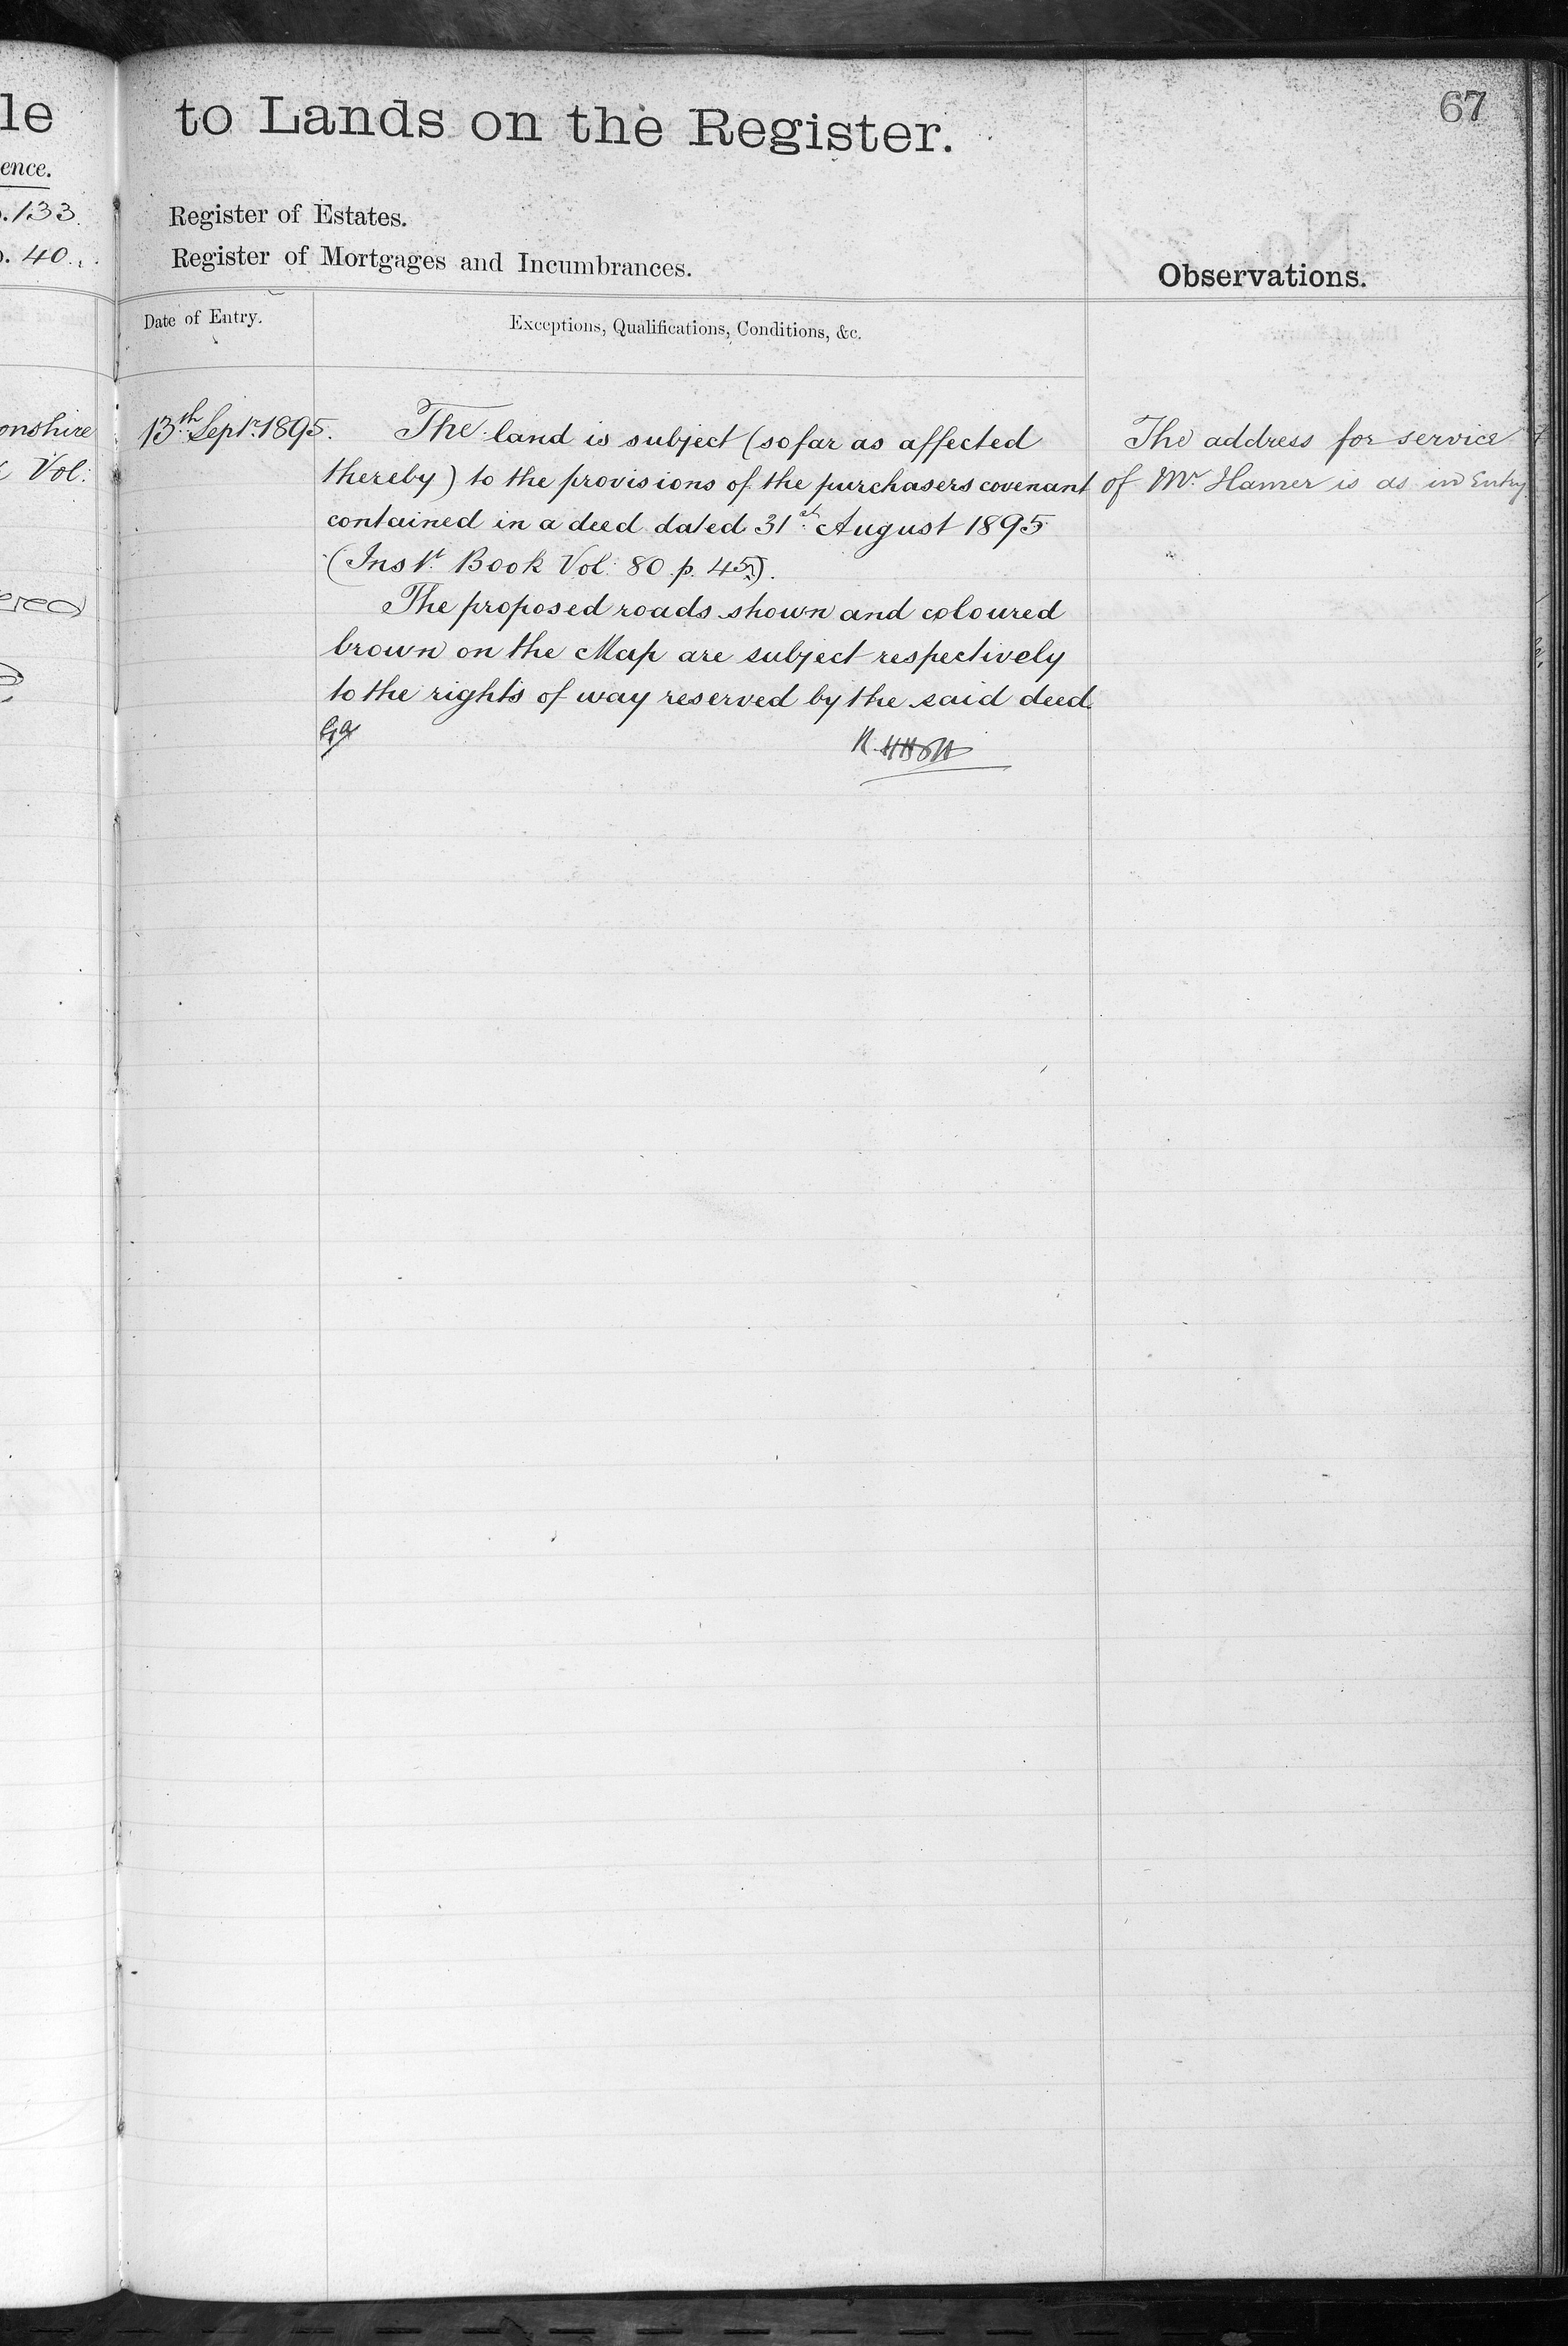 le
ence.
133.
40.
onshire
Vol:
ered
67
to Lands on the Register.
Register of Estates.
Register of Mortgages and Incumbrances.
Observations.
Date of Entry.
Exceptions, Qualifications, Conditions, &c.
13th Septr. 1895.
The land is subject (so far as affected
thereby) to the provisions of the purchasers covenant
contained in a deed dated 31st August 1895
(Instt. Book Vol: 80 p. 45).
The proposed roads shown and coloured
brown on the Map are subject respectively
to the rights of way reserved by the said deed.
The address for service
of Mr. Hamer is as in Entry